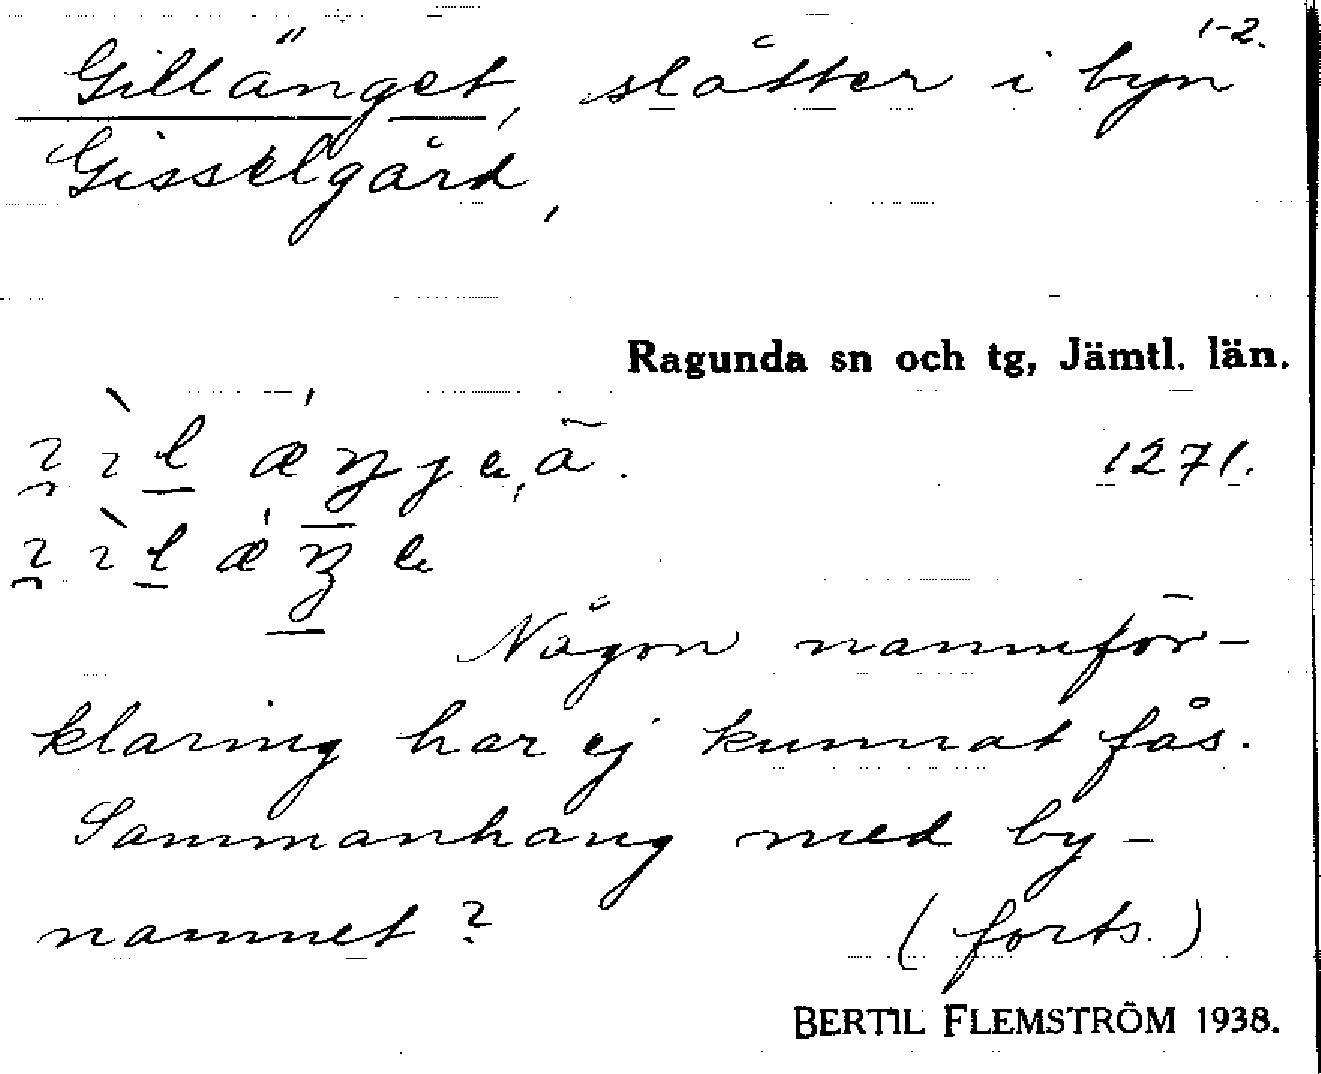 1-2.
Gilländet, slåtter i byn
Gisselgård,
Ragunda sn och tg, Jämtl. län.
1271.
Någon namnför-
klaring har ej kunnat fås.
Sammanhang med by-
namnet?
(forts.)
BERTIL FLEMSTRÖM 1938.